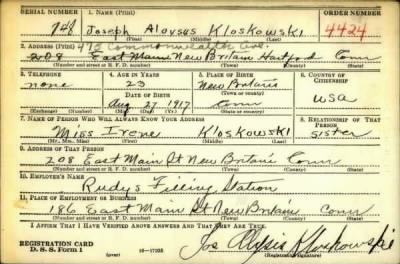 SERIAL NUMBER 1. NAME (Print) ORDER NUMBER
748 Joseph Aloysus Kloskowski 4424
(First) (Middle) (Last)
2. ADDRESS (Print) 479 Commonwealth Ave.
208 East Main New Britain Hartford Conn
(Number and street or R. F. D. number) (Town) (County) (State)
3. TELEPHONE 4. AGE IN YEARS 5. PLACE OF BIRTH 6. COUNTRY OF CITIZENSHIP
none 23 New Britain
DATE OF BIRTH (Town or county)
Aug 27 1917 Conn USA
(Exchange) (Number) (Mo.) (Day) (Yr.) (State or country)
7. NAME OF PERSON WHO WILL ALWAYS KNOW YOUR ADDRESS 8. RELATIONSHIP OF THAT PERSON
Miss Irene Kloskowski sister
(Mr., Mrs., Miss) (First) (Middle) (Last)
9. ADDRESS OF THAT PERSON
208 East Main St New Britain Conn
(Number and street or R. F. D. number) (Town) (County) (State)
10. EMPLOYER'S NAME
Rudys Filling Station
11. PLACE OF EMPLOYMENT OR BUSINESS
186 East Main St New Britain Conn
(Number and street or R. F. D. number) (Town) (County) (State)
I AFFIRM THAT I HAVE VERIFIED ABOVE ANSWERS AND THAT THEY ARE TRUE.
REGISTRATION CARD
D. S. S. Form 1 (over) 16—17105
Jos Alysis Kloskowski
(Registrant's signature)